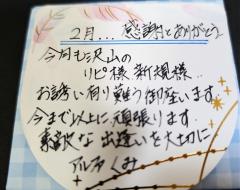 2月...感謝とありがとう
今月も沢山の
リピ様新規様..
お誘い有り難う御座います。
今まで以上に頑張ります。
素敵な出逢いを大切に
くみ